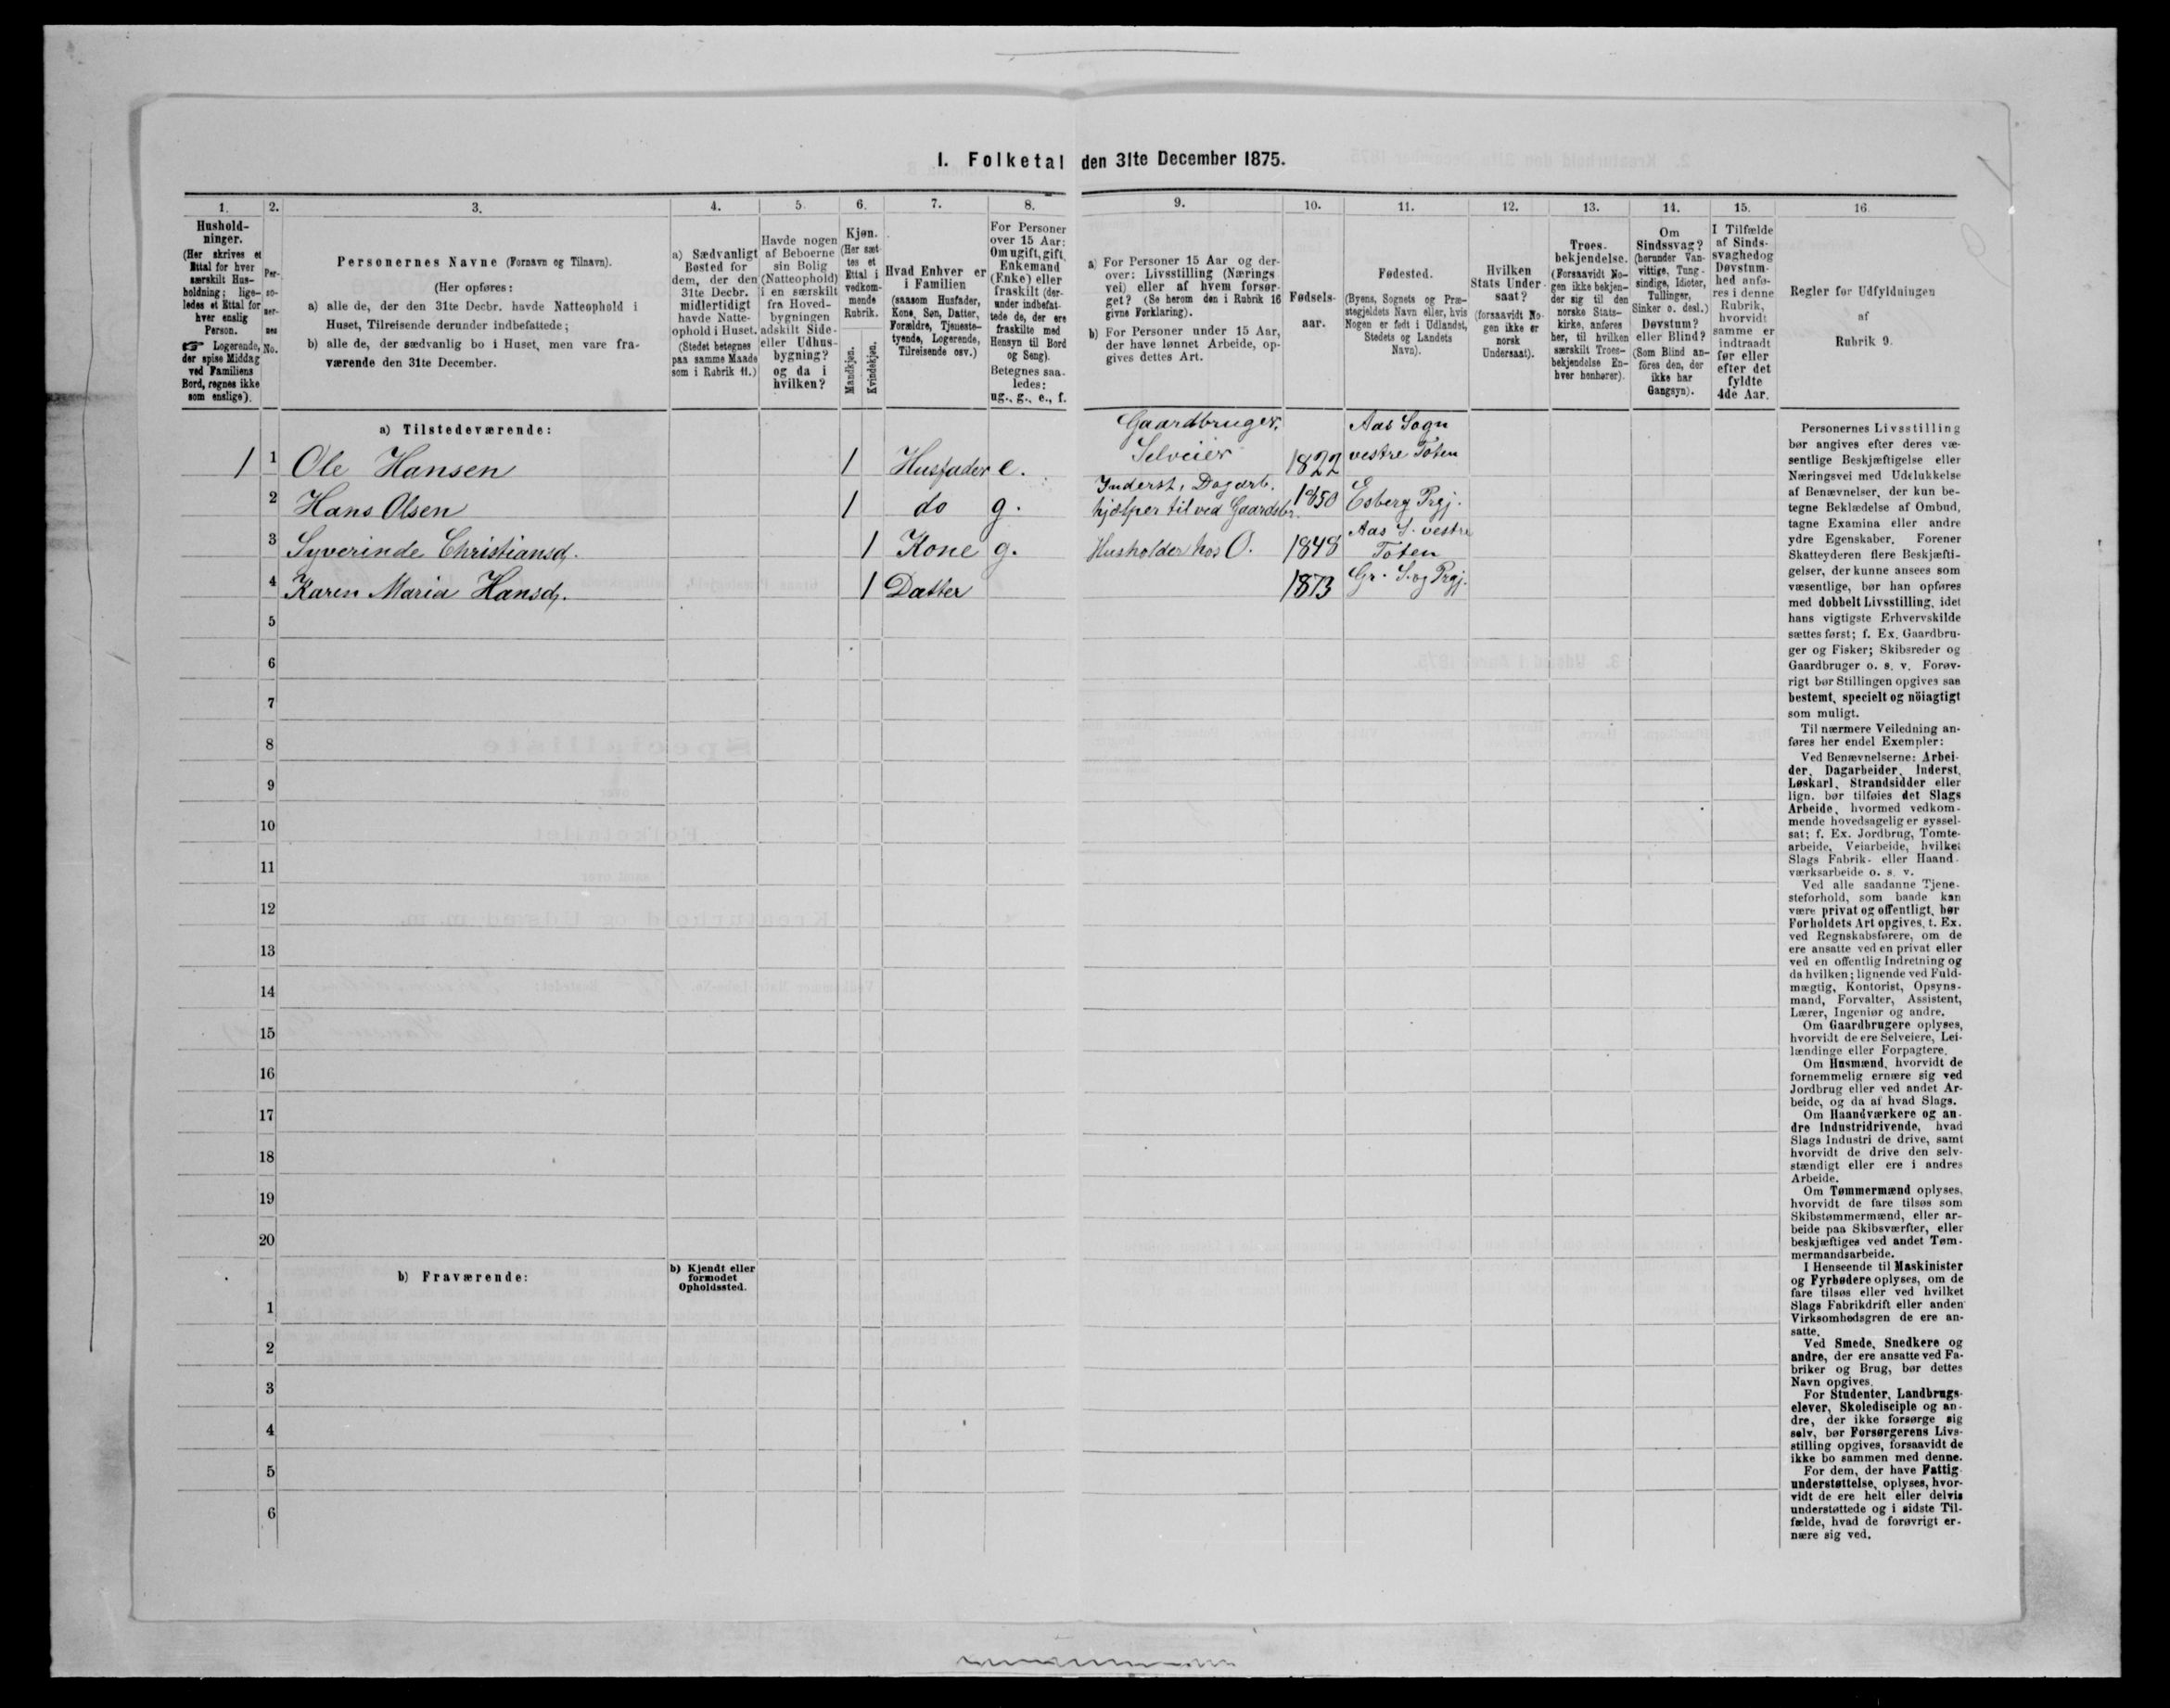 I. Folketal den 31te December 1875.
1.
Hushold-
ninger.
(Her skrives et
Ettal for hver
særskilt Hus-
holdning; lige-
ledes et Ettal for
hver enslig
Person.
☞ Logerende,
der spise Middag
ved Familiens
Bord, regnes ikke
som enslige).
2.
Per-
so-
ner-
nes
No.
3.
Personernes Navne (Fornavn og Tilnavn).
(Her opføres:
a) alle de, der den 31te Decbr. havde Natteophold i
Huset, Tilreisende derunder indbefattede;
b) alle de, der sædvanlig bo i Huset, men vare fra-
værende den 31te December.
4.
a) Sædvanligt
Bosted for
dem, der den
31te Decbr.
midlertidigt
havde Natte-
ophold i Huset.
(Stedet betegnes
paa samme Maade
som i Rubrik 11.)
5.
Havde nogen
af Beboerne
sin Bolig
(Natteophold)
i en særskilt
fra Hoved-
bygningen
adskilt Side-
eller Udhus-
bygning?
og da i
hvilken?
6.
Kjøn.
(Her sæt-
tes et
Ettal i
vedkom-
mende
Rubrik.
Mandkjøn.
Kvindekjøn.
7.
Hvad Enhver er
i Familien
(saasom Husfader,
Kone, Søn, Datter,
Forældre, Tjeneste-
tyende, Logerende,
Tilreisende osv.)
8.
For Personer
over 15 Aar:
Om ugift, gift,
Enkemand
(Enke) eller
fraskilt (der-
under indbefat-
tede de, der ere
fraskilte med
Hensyn til Bord
og Seng).
Betegnes saa-
ledes:
ug., g., e., f.
9.
a) For Personer 15 Aar og der-
over: Livsstilling (Nærings
vei) eller af hvem forsør-
get? (Se herom den i Rubrik 16
givne Forklaring).
b) For Personer under 15 Aar,
der have lønnet Arbeide, op-
gives dettes Art.
10.
Fødsels-
aar.
11.
Fødested.
(Byens, Sognets og Præ-
stegjeldets Navn eller, hvis
Nogen er født i Udlandet,
Stedets og Landets
Navn).
12.
Hvilken
Stats Under-
saat?
(forsaavidt No-
gen ikke er
norsk
Undersaat).
13.
Troes-
bekjendelse.
(Forsaavidt No-
gen ikke bekjen-
der sig til den
norske Stats-
kirke, anføres
her, til hvilken
særskilt Troes-
bekjendelse En-
hver henhører).
14.
Om
Sindssvag?
(herunder Van-
vittige, Tung-
sindige, Idioter,
Tullinger,
Sinker o. desl.)
Døvstum?
eller Blind?
(Som Blind an-
føres den, der
ikke har
Gangsyn).
15.
I Tilfælde
af Sinds-
svaghed og
Døvstum-
hed anfø-
res i denne
Rubrik,
hvorvidt
samme er
indtraadt
før eller
efter det
fyldte
4de Aar.
16.
Regler for Udfyldningen
af
Rubrik 9.
a) Tilstedeværende:
1 1 Ole Hansen 1 Husfader e. Gaardbruger, Selveier 1822 Aas Sogn vestre Toten
2 Hans Olsen 1 do g. Inderst, Dagarb. hjælper til ved Gaardsbr. 1850 Esberg Prgj.
3 Syverinde Christiansd. 1 Kone g. Husholder hos O. 1848 Aas S. vestre Toten
4 Karen Maria Hansd. 1 Datter 1873 Gr. S. og Prgj.
5
6
7
8
9
10
11
12
13
14
15
16
17
18
19
20
b) Fraværende:
b) Kjendt eller
formodet
Opholdssted.
1
2
3
4
5
6
Personernes Livsstilling
bør angives efter deres væ-
sentlige Beskjæftigelse eller
Næringsvei med Udelukkelse
af Benævnelser, der kun be-
tegne Beklædelse af Ombud,
tagne Examina eller andre
ydre Egenskaber. Forener
Skatteyderen flere Beskjæfti-
gelser, der kunne ansees som
væsentlige, bør han opføres
med dobbelt Livsstilling, idet
hans vigtigste Erhvervskilde
sættes først; f. Ex. Gaardbru-
ger og Fisker; Skibsreder og
Gaardbruger o. s. v. Forøv-
rigt bør Stillingen opgives saa
bestemt, specielt og nöiagtigt
som muligt.
Til nærmere Veiledning an-
føres her endel Exempler:
Ved Benævnelserne: Arbei-
der, Dagarbeider, Inderst,
Løskarl, Strandsidder eller
lign. bør tilføies det Slags
Arbeide, hvormed vedkom-
mende hovedsagelig er syssel-
sat; f. Ex. Jordbrug, Tomte-
arbeide, Veiarbeide, hvilket
Slags Fabrik- eller Haand-
værksarbeide o. s. v.
Ved alle saadanne Tjene-
steforhold, som baade kan
være privat og offentligt, bør
Forholdets Art opgives, t. Ex.
ved Regnskabsførere, om de
ere ansatte ved en privat eller
ved en offentlig Indretning og
da hvilken; lignende ved Fuld-
mægtig, Kontorist, Opsyns-
mand, Forvalter, Assistent,
Lærer, Ingeniør og andre.
Om Gaardbrugere oplyses,
hvorvidt de ere Selveiere, Lei-
lændinge eller Forpagtere.
Om Husmænd, hvorvidt de
fornemmelig ernære sig ved
Jordbrug eller ved andet Ar-
beide, og da af hvad Slags.
Om Haandværkere og an-
dre Industridrivende, hvad
Slags Industri de drive, samt
hvorvidt de drive den selv-
stændigt eller ere i andres
Arbeide.
Om Tømmermænd oplyses,
hvorvidt de fare tilsøs som
Skibstømmermænd, eller ar-
beide paa Skibsværfter, eller
beskjæftiges ved andet Tøm-
mermandsarbeide.
I Henseende til Maskinister
og Fyrbødere oplyses, om de
fare tilsøs eller ved hvilket
Slags Fabrikdrift eller anden
Virksomhedsgren de ere an-
satte.
Ved Smede, Snedkere og
andre, der ere ansatte ved Fa-
briker og Brug, bør dettes
Navn opgives.
For Studenter, Landbrugs-
elever, Skoledisciple og an-
dre, der ikke forsørge sig
selv, bør Forsørgerens Livs-
stilling opgives, forsaavidt de
ikke bo sammen med denne.
For dem, der have Fattig-
understøttelse, oplyses, hvor-
vidt de ere helt eller delvis
understøttede og i sidste Til-
fælde, hvad de forøvrigt er-
nære sig ved.